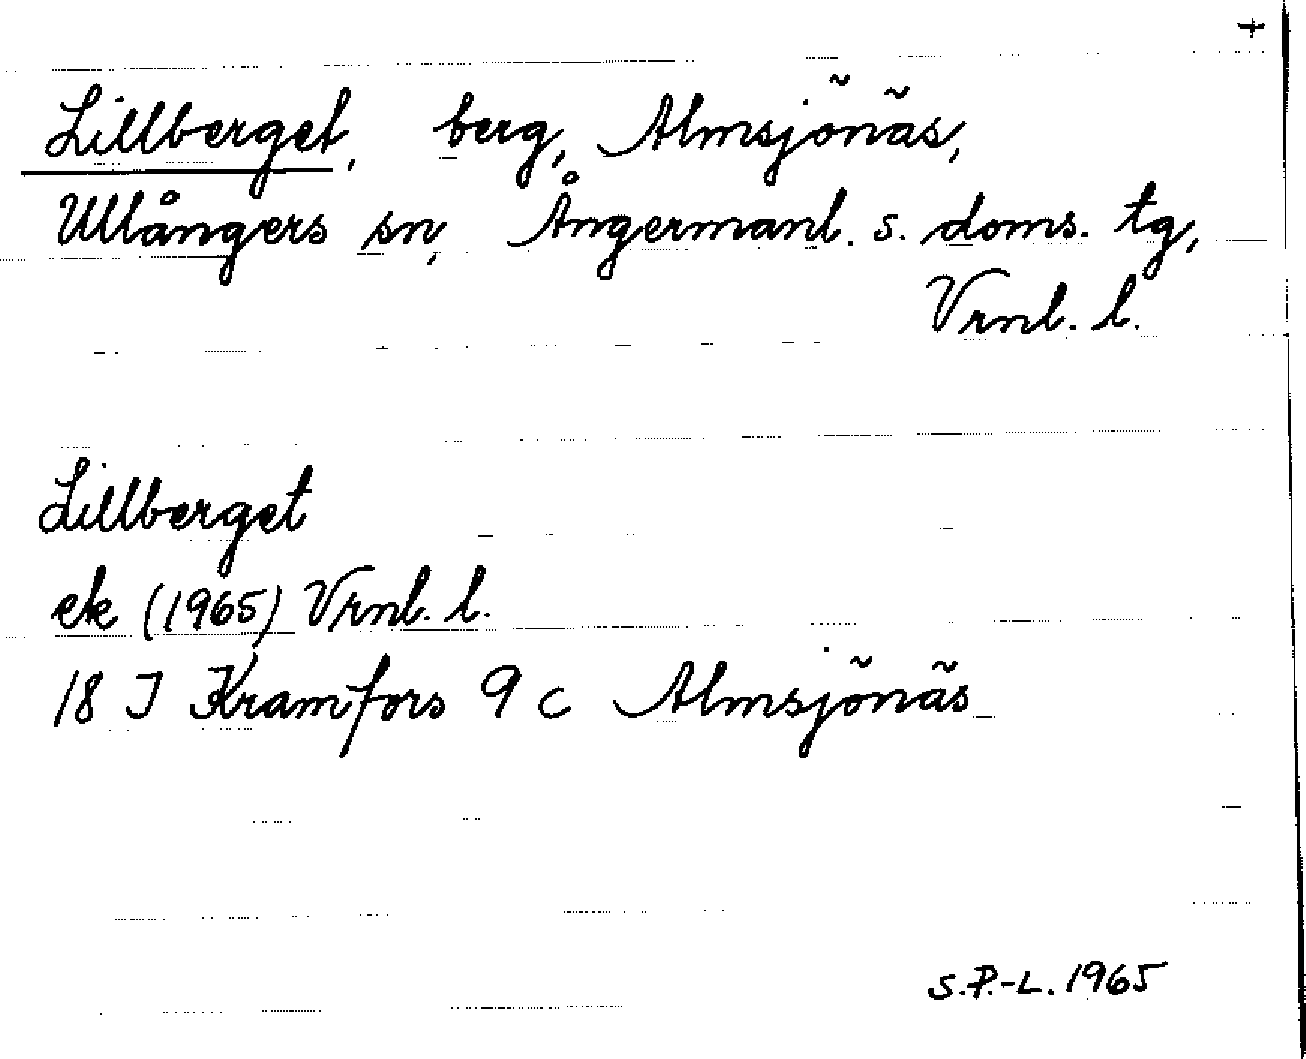 +
Lillberget, berg, Almsjönäs,
Ullångers sn, Ångermanl. s. doms. tg,
Vrnl. l.
Lillberget
ek (1965) Vrnl. l.
18 I Kramfors 9 c Almsjönäs
S.P.-L. 1965